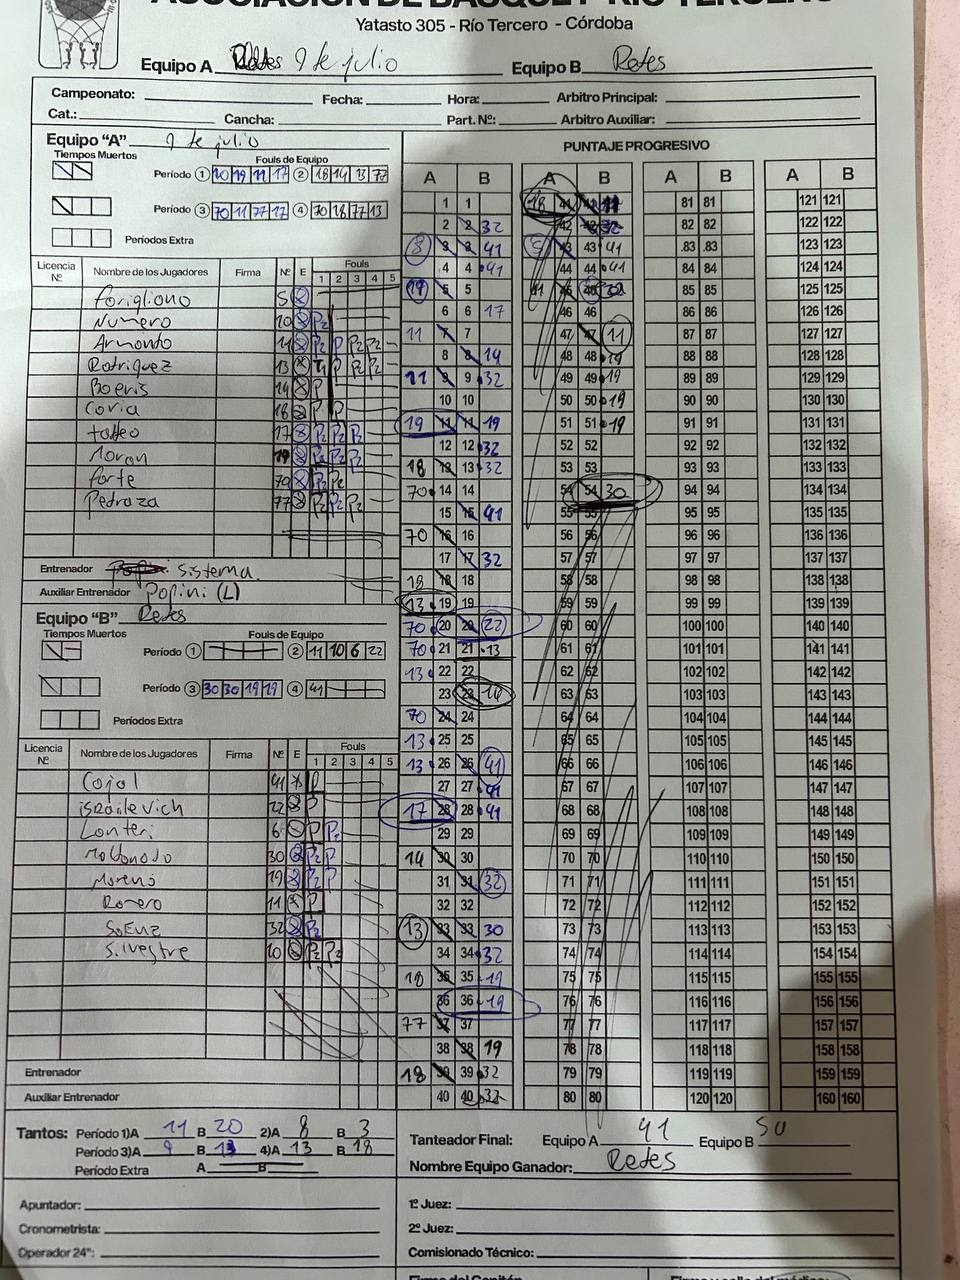 ASOCIACIÓN DE BASQUET RÍO TERCERO
Yatasto 305 - Río Tercero - Córdoba
Equipo A 9 de julio Equipo B Retes
Campeonato: Fecha: Hora: Arbitro Principal:
Cat.: Cancha: Part. Nº: Arbitro Auxiliar:
Equipo “A” 9 de julio
Tiempos Muertos Fouls de Equipo
Período 1 20 19 11 17 2 18 14 13 77
Período 3 70 11 77 17 4 70 18 77 13
Períodos Extra
Licencia Nº Nombre de los Jugadores Firma Nº E Fouls 1 2 3 4 5
Forigliono 5
Numero 20 P2
Armonto 11 P2 P P2 P2
Rotriquez 13 T1 P P2 P2
Boeris 14 P
Coria 18 P P
totteo 17 P2 P2 P3
Moron 19 P2 P2 P2
forte 70 P2 P2
Pedraza 77 P2 P2 P2
Entrenador sistema
Auxiliar Entrenador Popini (L)
Equipo “B” Retes
Tiempos Muertos Fouls de Equipo
Período 1 2 11 10 6 22
Período 3 30 30 19 19 4 41
Períodos Extra
Licencia Nº Nombre de los Jugadores Firma Nº E Fouls 1 2 3 4 5
Cojal 41 P
israilevich 22 P
Lonteri 6 P P2
Moldonado 30 P2 P
Moreno 19 P2 P
Romero 11 P
Soenz 32 P2
Silvestre 10 P2 P2
Entrenador
Auxiliar Entrenador
Tantos: Período 1)A 11 B 20 2)A 8 B 3
Período 3)A 9 B 13 4)A 13 B 18
Período Extra A B
Apuntador:
Cronometrista:
Operador 24":
PUNTAJE PROGRESIVO
A B A B A B A B
1 1 18 41 41 81 81 121 121
2 2 32 42 42 32 82 82 122 122
3 3 41 43 43 41 83 83 123 123
4 4 41 44 44 41 84 84 124 124
5 5 45 45 22 85 85 125 125
6 6 17 46 46 86 86 126 126
11 7 7 47 47 11 87 87 127 127
8 8 14 48 48 19 88 88 128 128
11 9 9 32 49 49 19 89 89 129 129
10 10 50 50 19 90 90 130 130
19 11 11 19 51 51 19 91 91 131 131
12 12 32 52 52 92 92 132 132
18 13 13 32 53 53 93 93 133 133
70 14 14 54 54 30 94 94 134 134
15 15 41 55 55 95 95 135 135
70 16 16 56 56 96 96 136 136
17 17 32 57 57 97 97 137 137
18 18 18 58 58 98 98 138 138
13 19 19 59 59 99 99 139 139
70 20 20 22 60 60 100 100 140 140
70 21 21 13 61 61 101 101 141 141
13 22 22 62 62 102 102 142 142
23 23 63 63 103 103 143 143
70 24 24 64 64 104 104 144 144
13 25 25 65 65 105 105 145 145
13 26 26 41 66 66 106 106 146 146
27 27 41 67 67 107 107 147 147
17 28 28 41 68 68 108 108 148 148
29 29 69 69 109 109 149 149
14 30 30 70 70 110 110 150 150
31 31 32 71 71 111 111 151 151
32 32 72 72 112 112 152 152
13 33 33 30 73 73 113 113 153 153
34 34 32 74 74 114 114 154 154
18 35 35 19 75 75 115 115 155 155
36 36 19 76 76 116 116 156 156
77 37 37 77 77 117 117 157 157
38 38 19 78 78 118 118 158 158
18 39 39 32 79 79 119 119 159 159
40 40 32 80 80 120 120 160 160
Tanteador Final: Equipo A 41 Equipo B 54
Nombre Equipo Ganador: Retes
1º Juez:
2º Juez:
Comisionado Técnico: